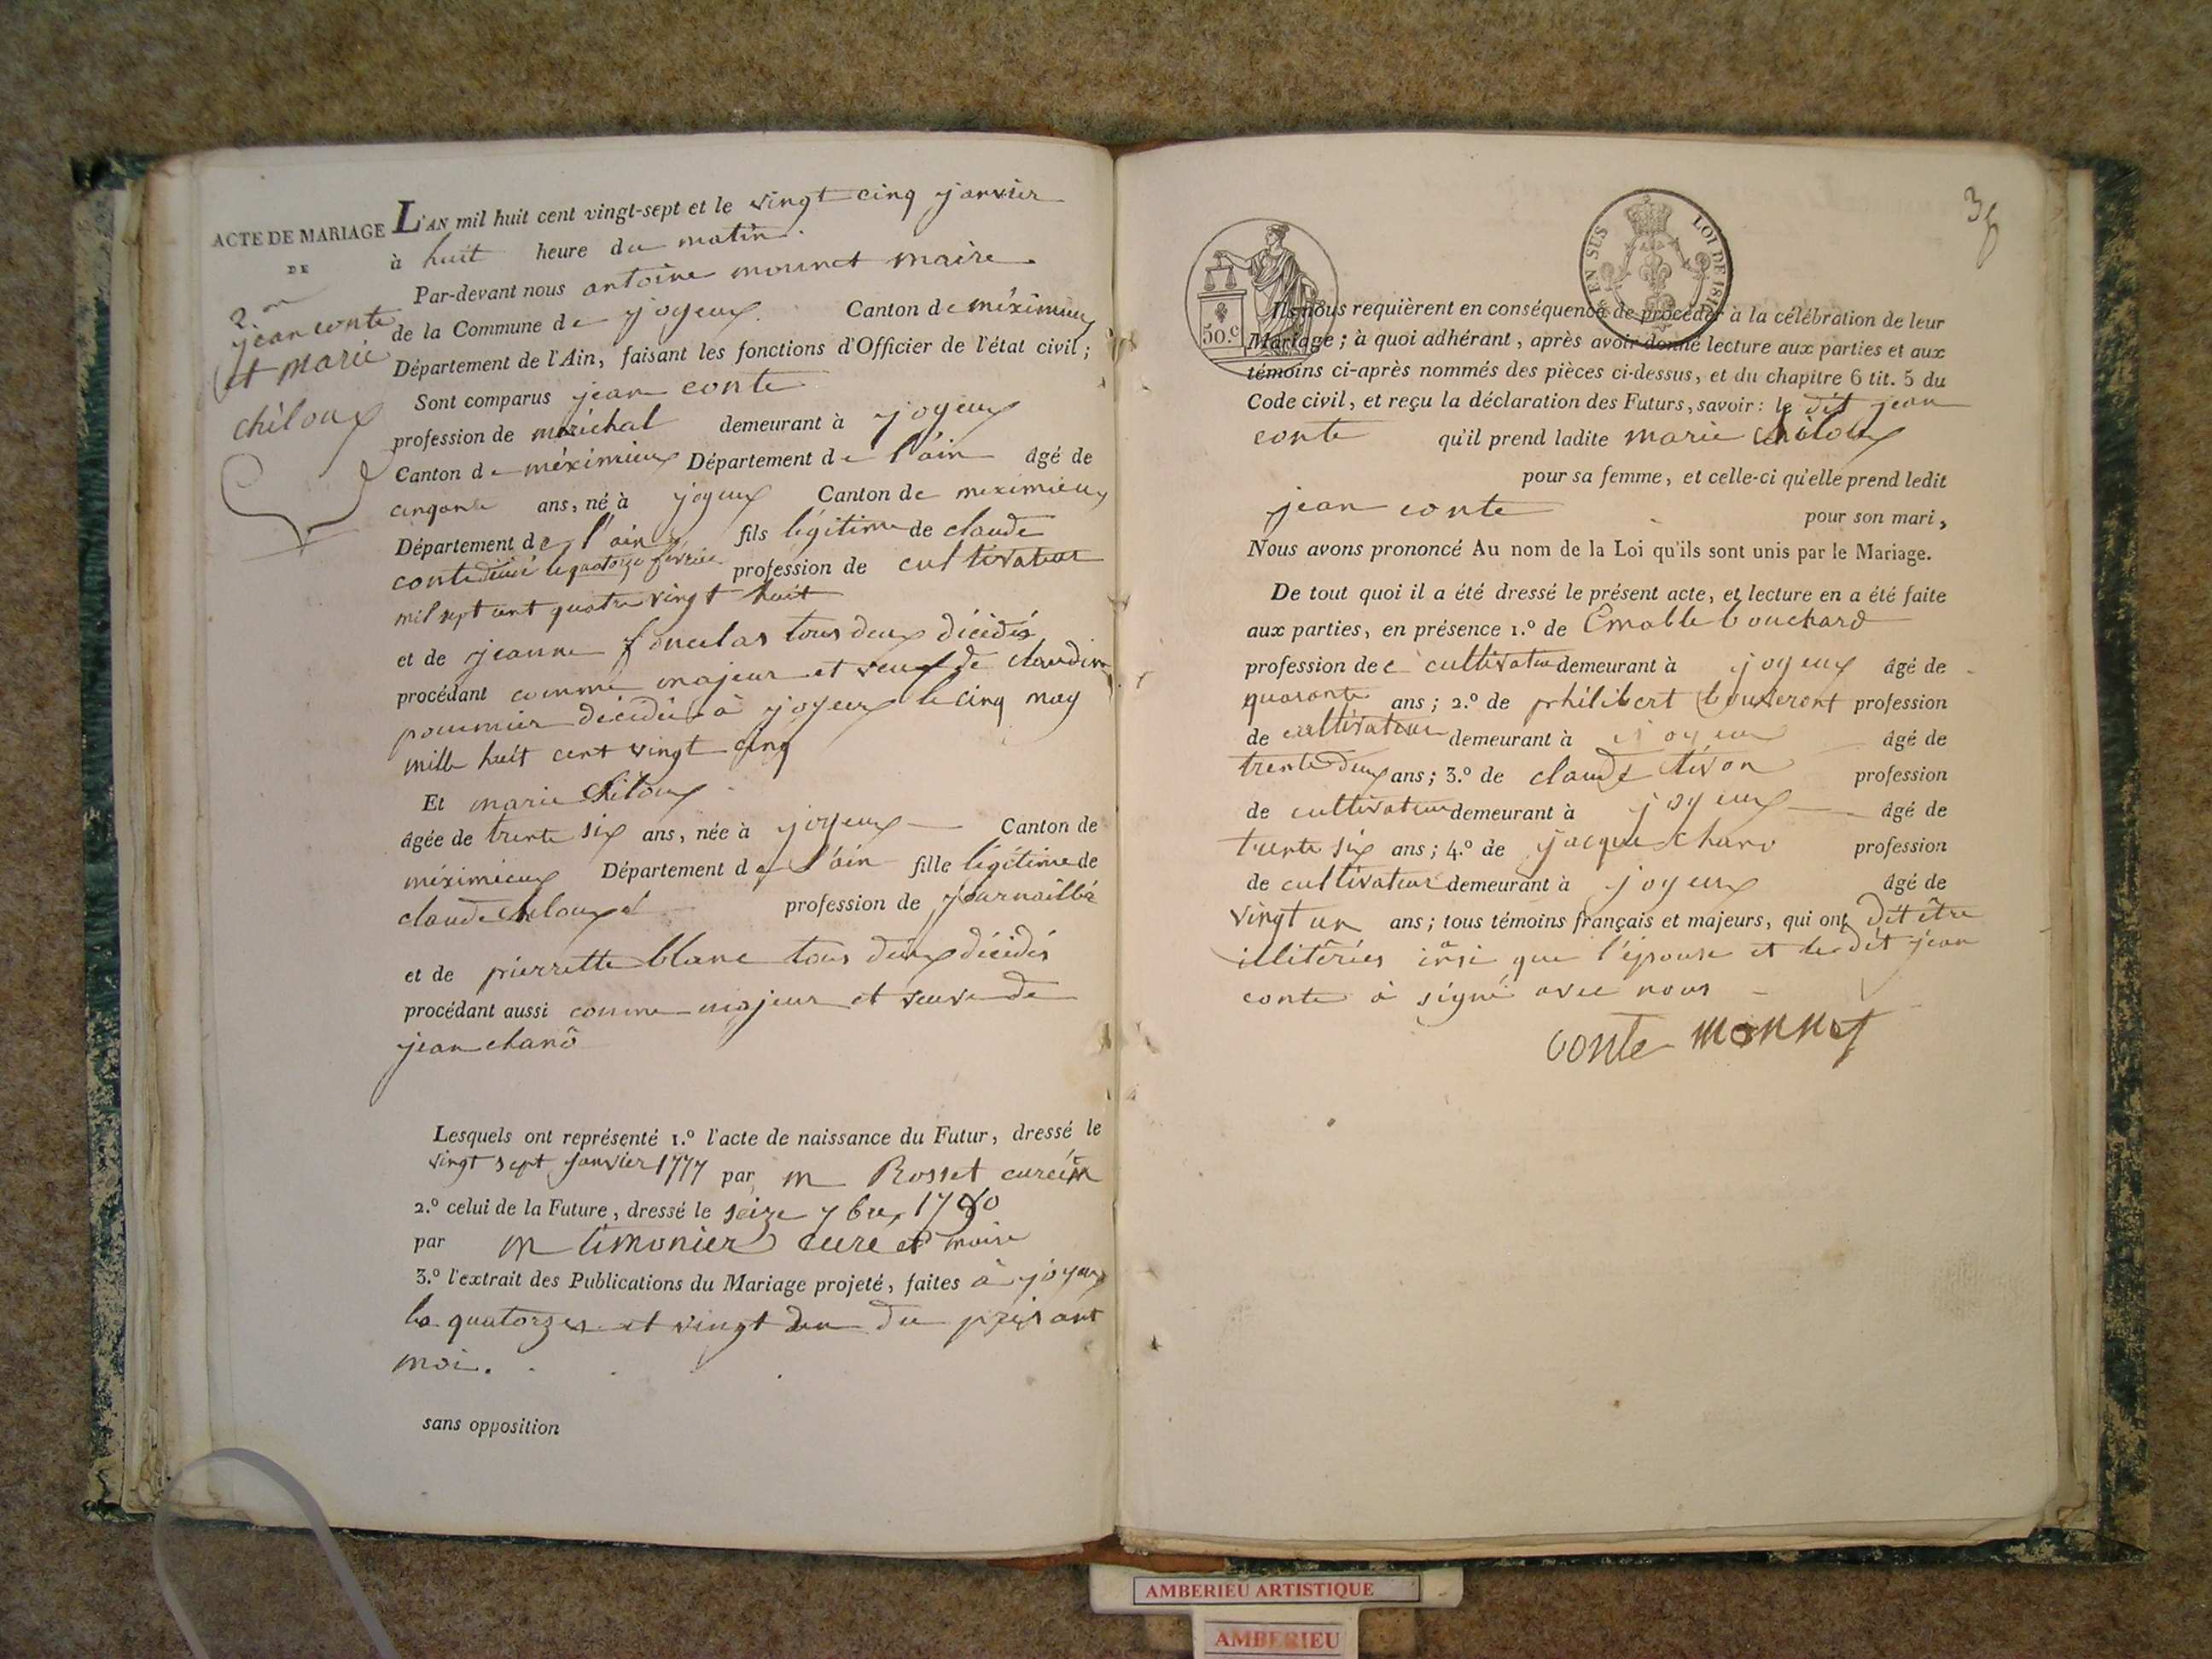 ACTE DE MARIAGE
DE
2.m
jean conte
et marie
chiloux
L'AN mil huit cent vingt-sept et le vingt cinq janvier
à huit heure du matin.
Par-devant nous antoine monnet maire
de la Commune de joyeux. Canton de méximieux
Département de l'Ain, faisant les fonctions d'Officier de l'état civil;
Sont comparus jean conte
profession de maréchal demeurant à joyeux
Canton de méximieux Département de l'ain âgé de
cinqante ans, né à joyeux Canton de meximieux
Département de l'ain fils légitime de claude
conte décidé le quatorze février profession de cultivateur
mil sept cent quatre vingt huit
et de jeanne tous deux décidés
procédant comme majeur et veuf de claudine
décidée à joyeux le cinq may
mille huit cent vingt cinq
Et marie chiloux
âgée de trente six ans, née à joyeux Canton de
méximieux Département de l'ain fille légitime de
claude chiloux profession de
et de pierrette blanc tous deux décidés
procédant aussi comme majeur et veuve de
jean chanô
Lesquels ont représenté 1.º l'acte de naissance du Futur, dressé le
vingt sept janvier 1777 par m Rosset curé
2.º celui de la Future, dressé le seize 7bre 1790
par m timonier curé et maire
3.º l'extrait des Publications du Mariage projeté, faites à joyeux
le quatorze et vingt du présant
moi.
sans opposition
35
EN SUS
LOI DE 1816
50.c
Ils nous requièrent en conséquence de procéder à la célébration de leur
Mariage; à quoi adhérant, après avoir donné lecture aux parties et aux
témoins ci-après nommés des pièces ci-dessus, et du chapitre 6 tit. 5 du
Code civil, et reçu la déclaration des Futurs, savoir: le dit jean
conte qu'il prend ladite marie chiloux
pour sa femme, et celle-ci qu'elle prend ledit
jean conte pour son mari,
Nous avons prononcé Au nom de la Loi qu'ils sont unis par le Mariage.
De tout quoi il a été dressé le présent acte, et lecture en a été faite
aux parties, en présence 1.º de Emable bouchard
profession de cultivateur demeurant à joyeux âgé de
quarante ans; 2.º de philibert profession
de cultivateur demeurant à joyeux âgé de
trente deux ans; 3.º de claude tivon profession
de cultivateur demeurant à joyeux âgé de
trente six ans; 4.º de jacque chano profession
de cultivateur demeurant à joyeux âgé de
vingt un ans; tous témoins français et majeurs, qui ont dit être
illitérés insi que l'épouse et le dit jean
conte à signé avec nous
conte monnet
AMBERIEU ARTISTIQUE
AMBERIEU